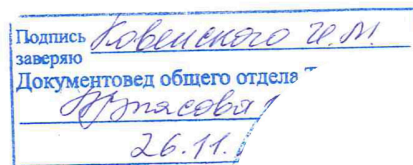 Подпись Ковенского И.М.
заверяю
Документовед общего отдела
26.11.